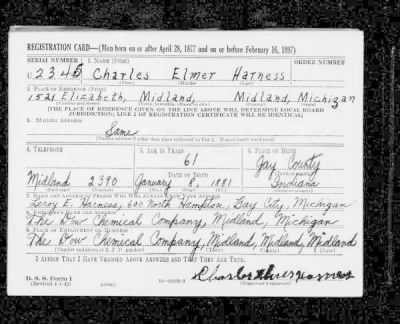 REGISTRATION CARD—(Men born on or after April 28, 1877 and on or before February 16, 1897)
SERIAL NUMBER 1. NAME (Print) ORDER NUMBER
U 2345 Charles Elmer Harness
(First) (Middle) (Last)
2. PLACE OF RESIDENCE (Print)
1521 Elizabeth, Midland, Midland, Michigan
(Number and street) (Town, township, village, or city) (County) (State)
[THE PLACE OF RESIDENCE GIVEN ON THE LINE ABOVE WILL DETERMINE LOCAL BOARD
JURISDICTION; LINE 2 OF REGISTRATION CERTIFICATE WILL BE IDENTICAL]
3. MAILING ADDRESS
Same
[Mailing address if other than place indicated on line 2. If same insert word same]
4. TELEPHONE 5. AGE IN YEARS 6. PLACE OF BIRTH
61 Jay County
DATE OF BIRTH
Midland 2390 January 8, 1881 Indiana
7. NAME AND ADDRESS OF PERSON WHO WILL ALWAYS KNOW YOUR ADDRESS
Leroy E. Harness, 600 North Hampton, Bay City, Michigan
8. EMPLOYER'S NAME AND ADDRESS
The Dow Chemical Company, Midland, Michigan
9. PLACE OF EMPLOYMENT OR BUSINESS
The Dow Chemical Company, Midland, Midland, Midland
(Number and street or R. F. D. number) (Town) (County) (State)
I AFFIRM THAT I HAVE VERIFIED ABOVE ANSWERS AND THAT THEY ARE TRUE.
D. S. S. Form 1
(Revised 4-1-42) (over) (Registrant's signature)